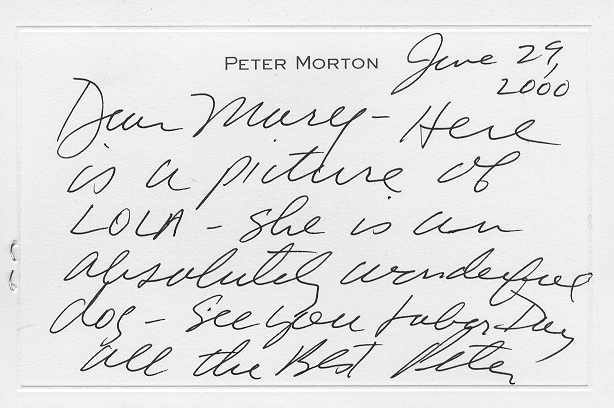 PETER MORTON
June 29,
2000
Dear Mary - Here
is a picture of
LOLA - She is an
absolutely wonderful
dog - See you Labor Day
all the Best Peter